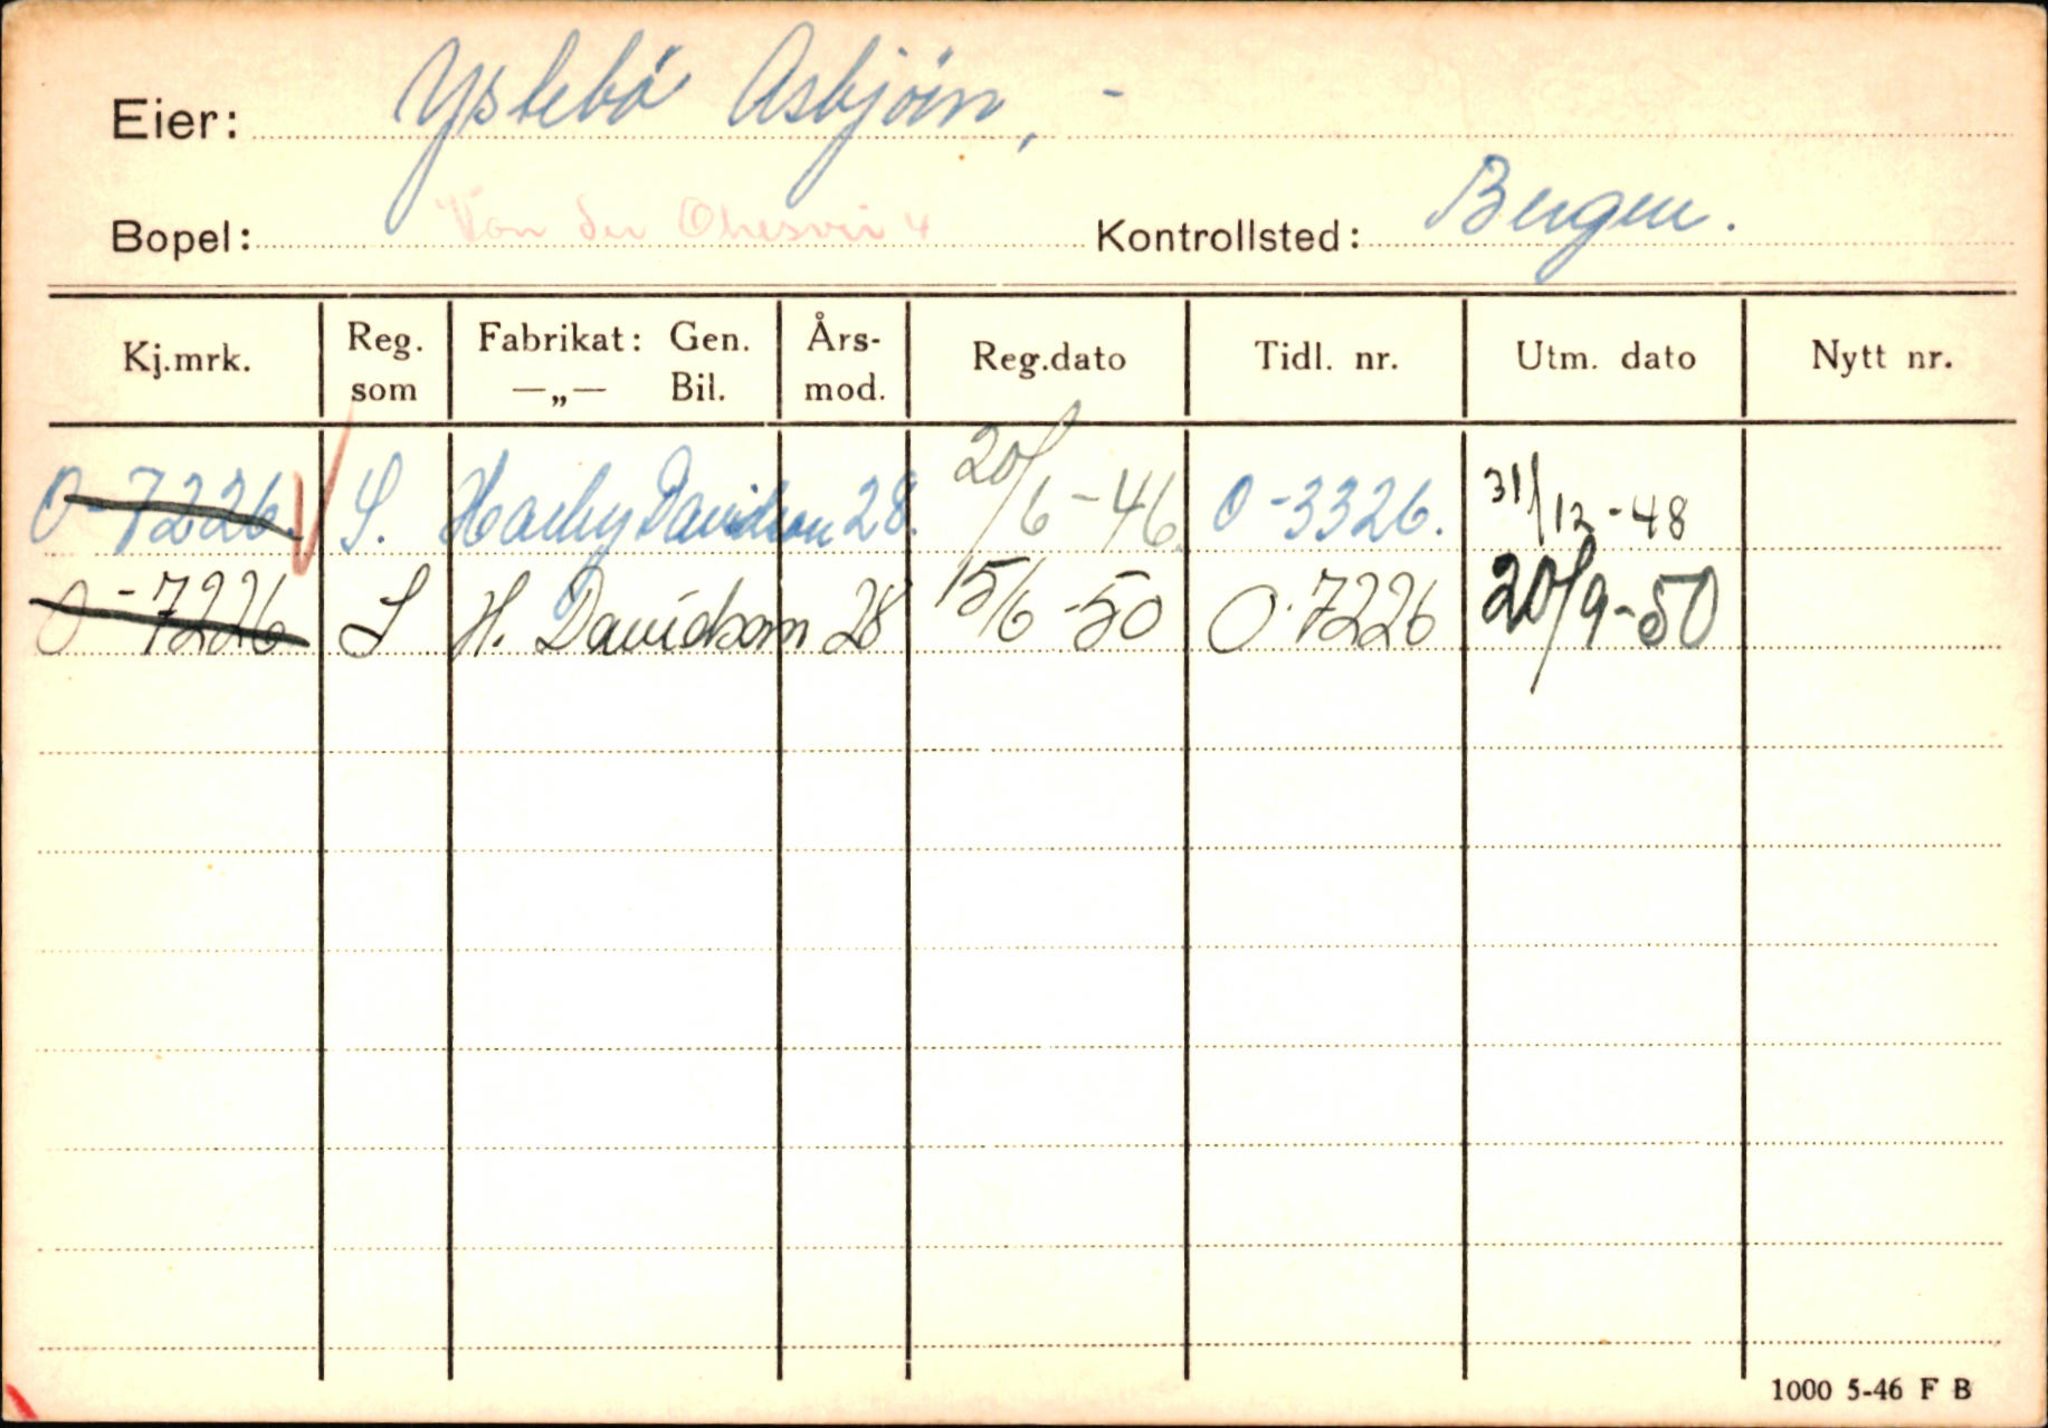 Eier: Ystebö Asbjörn, -
Bopel: Von der Ohesvei 4 Kontrollsted: Bergen.
Kj.mrk. Reg. som Fabrikat: Gen. —„— Bil. Års- mod. Reg.dato Tidl. nr. Utm. dato Nytt nr.
O-7226. V S. Harley Davidson 28. 20/6-46. O-3326. 31/12-48
O-7226 S H. Davidson 28 15/6-50 O-7226 20/9-50
1000 5-46 F B